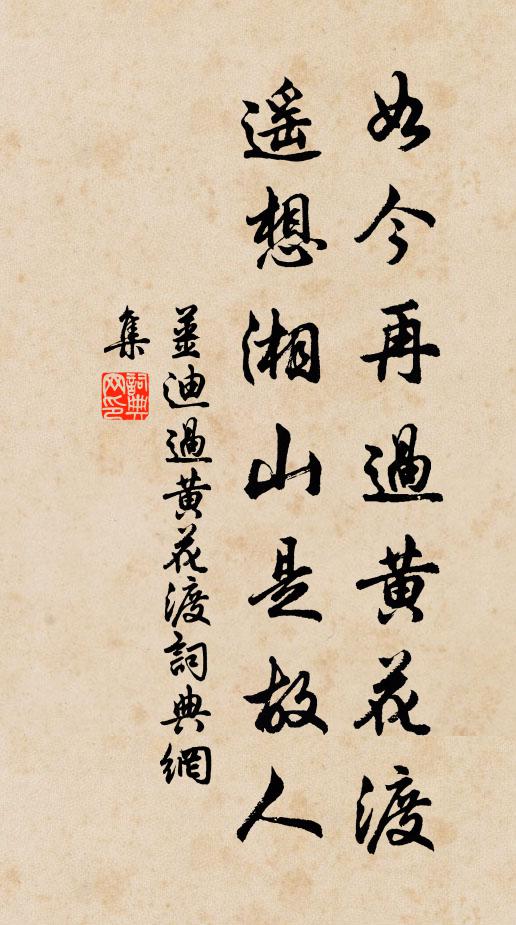 如今再過黃花渡
遥想湘山是故人
薑迪過黃花渡詞典網
集
詞典网印